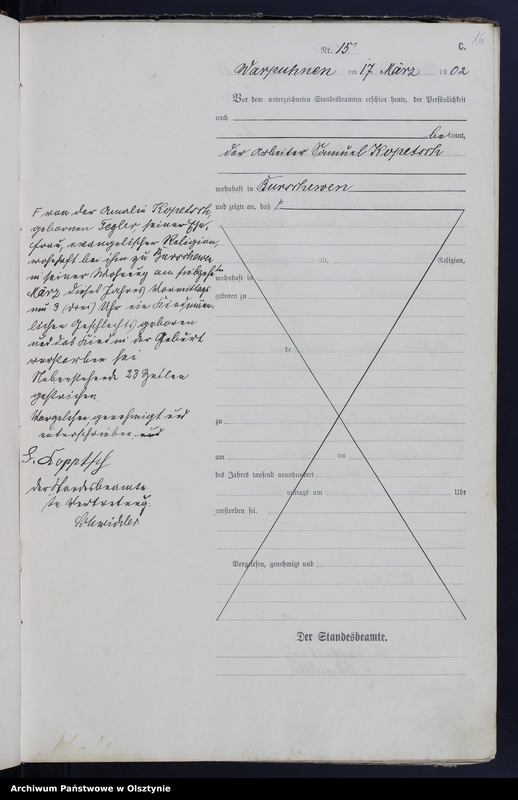 C.
16
Nr. 15
Warpuhnen am 17 März 1902
Vor dem unterzeichneten Standesbeamten erschien heute, der Persönlichkeit
nach
bekannt,
der Arbeiter Samuel Kopetsch
wohnhaft in Burschewen
und zeigte an, daß F
alt, Religion,
wohnhaft in
geboren zu
de
zu
am ten
des Jahres tausend neunhundert
mittags um Uhr
verstorben sei.
Vorgelesen, genehmigt und
Der Standesbeamte.
F von der Amalie Kopetsch,
gebornen Tegler, seiner Ehe-
frau, evangelischer Religion,
wohnhaft bei ihm zu Burschewen
in seiner Wohnung am siebzehnten
März dieses Jahres Vormittags
um 3 (drei) Uhr ein Kind männ-
lichen Geschlechts geboren
und das Kind in der Geburt
verstorben sei
Nebenstehende 23 Zeilen
gestrichen.
Vorgelesen, genehmigt und
unterschrieben und
S. Koppetsch
Der Standesbeamte
In Vertretung:
Archiwum Państwowe w Olsztynie